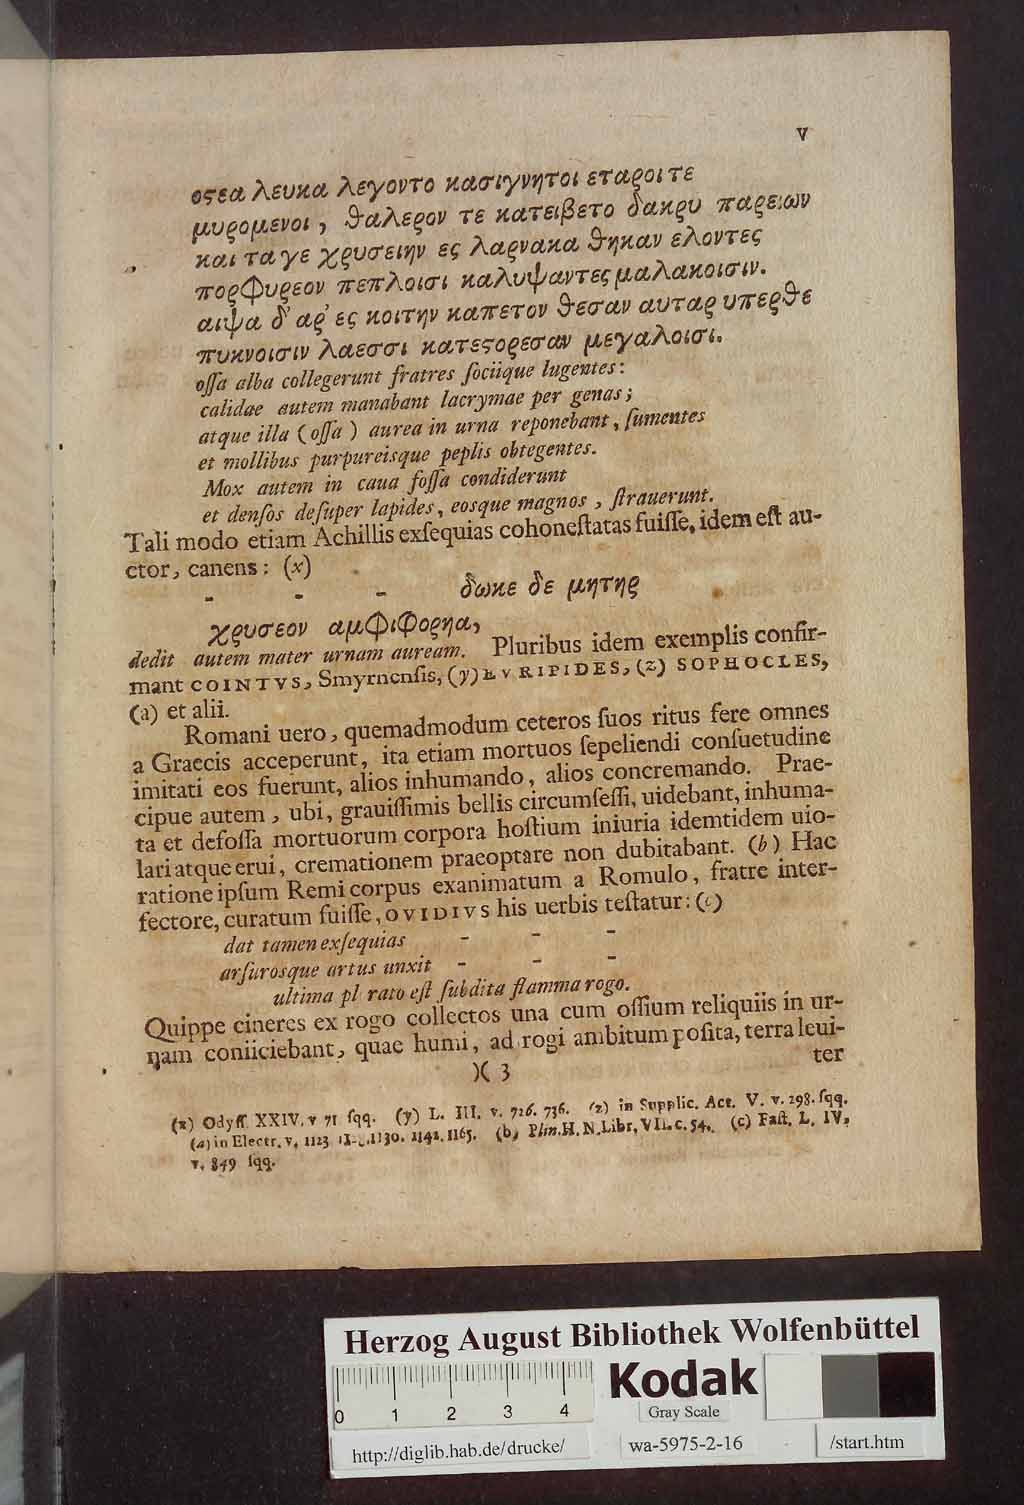 V
οϛεα λευκα λεγοντο κασιγνητοι εταροι τε
μυρομενοι, θαλερον τε κατειβετο δακρυ παρειων
και τα γε χρυσειην ες λαρνακα θηκαν ελοντες
πορφυρεον πεπλοισι καλυψαντες μαλακοισιν.
αιψα δ' αρ' ες κοιτην καπετον θεσαν αυταρ υπερθε
πυκνοισιν λαεσσι κατεϛορεσαν μεγαλοισι.
oſſa alba collegerunt fratres ſociique lugentes:
calidae autem manabant lacrymae per genas;
atque illa (oſſa) aurea in urna reponebant, ſumentes
et mollibus purpureisque peplis obtegentes.
Mox autem in caua foſſa condiderunt
et denſos deſuper lapides, eosque magnos, ſtrauerunt.
Tali modo etiam Achillis exſequias cohoneſtatas fuiſſe, idem eſt au-
ctor, canens: (x)
- - - δωκε δε μητης
χρυσεον αμφιφορηα,
dedit autem mater urnam auream. Pluribus idem exemplis confir-
mant COINTVS, Smyrnenſis, (y) EVRIPIDES, (z) SOPHOCLES,
(a) et alii.
Romani uero, quemadmodum ceteros ſuos ritus fere omnes
a Graecis acceperunt, ita etiam mortuos ſepeliendi conſuetudine
imitati eos fuerunt, alios inhumando, alios concremando. Prae-
cipue autem, ubi, grauiſſimis bellis circumſeſſi, uidebant, inhuma-
ta et defoſſa mortuorum corpora hoſtium iniuria idemtidem uio-
lari atque erui, cremationem praeoptare non dubitabant. (b) Hac
ratione ipſum Remi corpus exanimatum a Romulo, fratre inter-
fectore, curatum fuiſſe, OVIDIVS his uerbis teſtatur: (c)
dat tamen exſequias - - -
arſurosque artus unxit - - -
ultima pl rato eſt ſubdita flamma rogo.
Quippe cineres ex rogo collectos una cum oſſium reliquiis in ur-
nam coniiciebant, quae humi, ad rogi ambitum poſita, terra leui-
)( 3 ter
(x) Odyſſ. XXIV. v 71 ſqq. (y) L. III. v. 726. 736. (z) in Supplic. Act. V. v. 298. ſqq.
(a) in Electr. v. 1123 1130. 1142. 1165. (b) Plin. H. N. Libr. VII. c. 54. (c) Faſt. L. IV.
v. 849 ſqq.
Herzog August Bibliothek Wolfenbüttel
0 1 2 3 4
Kodak
Gray Scale
http://diglib.hab.de/drucke/ wa-5975-2-16 /start.htm